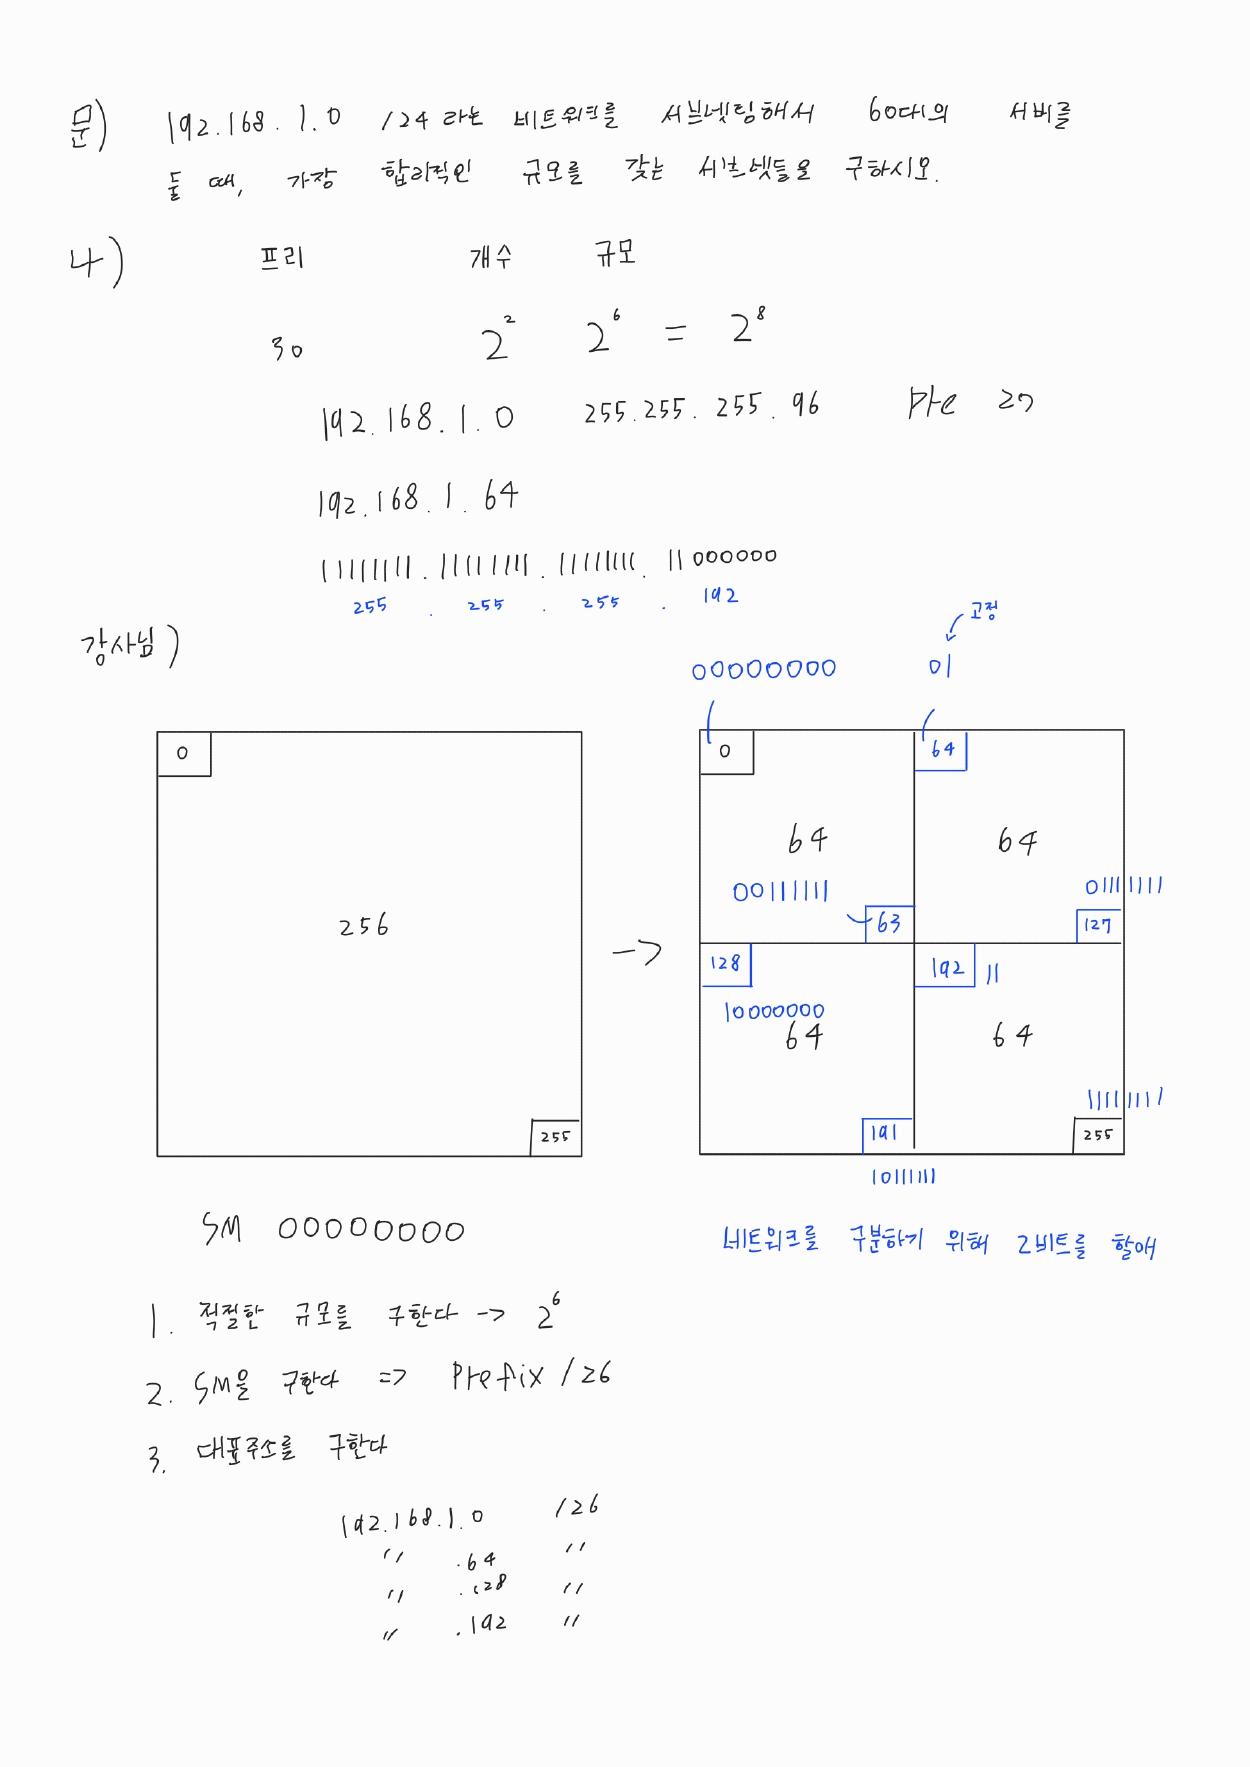 문) 192.168.1.0 /24 라는 네트워크를 서브넷팅해서 60대의 서버를
둘 때, 가장 합리적인 규모를 갖는 서브넷들을 구하시오.
나) 프리 개수 규모
30 2^2 2^6 = 2^8
192.168.1.0 255.255.255.96 Pre 27
192.168.1.64
11111111.11111111.11111111.11000000
255.255.255.192
고정
강사님)
00000000 01
0 0 64
64 64
00111111 01111111
256 63 127
128 192 11
10000000
64 64
11111111
255 191 255
10111111
SM 00000000
네트워크를 구분하기 위해 2비트를 할애
1. 적절한 규모를 구한다 -> 2^6
2. SM을 구한다 => Prefix /26
3. 대표주소를 구한다
192.168.1.0 /26
" .64 "
" .128 "
" .192 "